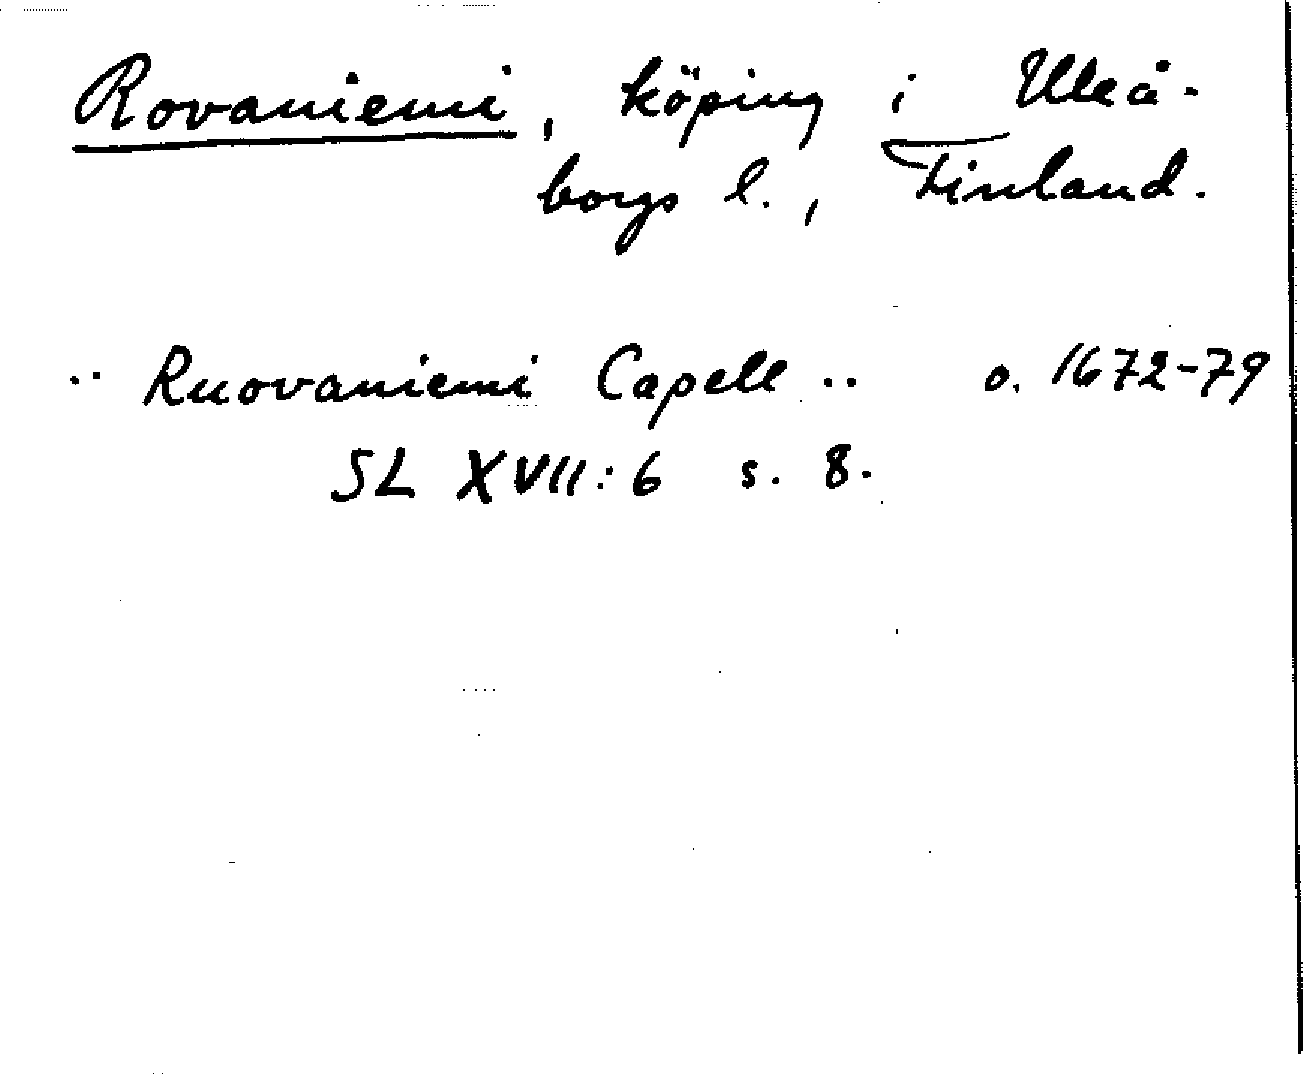 Rovaniemi, köping i Uleå-
borgs l., Finland.
.. Ruovaniemi Capell .. o. 1672-79
SL XVII:6 s. 8.